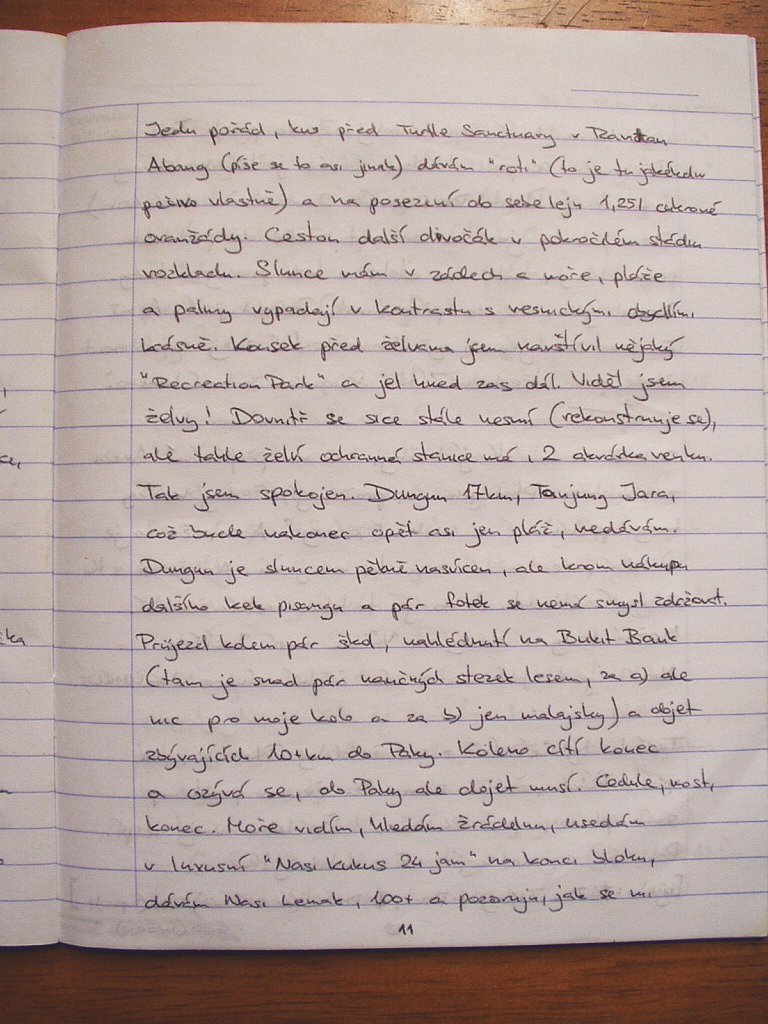 Jedu pořád, kus před Turtle Sanctuary v Rantau
Abang (píše se to asi jinak) dávám "roti" (to je tu jakékoliv
pečivo vlastně) a na posezení do sebe leju 1,25l citronové
oranžády. Cestou další divočák v pokročilém stádiu
rozkladu. Slunce mám v zádech a moře, pláže
a palmy vypadají v kontrastu s vesnickými obydlími
krásně. Kousek před želvama jsem navštívil nějaký
"Recreation Park" a jel hned zas dál. Viděl jsem
želvy! Dovnitř se sice stále nesmí (rekonstruuje se),
ale tahle želví ochranná stanice má i 2 akvárka venku.
Tak jsem spokojen. Dungun 17km, Tanjung Jara,
což bude nakonec opět asi jen pláž, nedávám.
Dungun je sluncem pěkně nasvícen, ale krom nákupu
dalšího kek pisangu a pár fotek se nemá smysl zdržovat.
Průjezd kolem pár škol, nahlédnutí na Bukit Bauk
(tam je snad pár naučných stezek lesem, za a) ale
nic pro moje kolo a za b) jen malajsky) a objet
zbývajících 10+km do Paky. Koleno cítí konec
a ozývá se, do Paky ale dojet musí. Cedule, most,
konec. Moře vidím, hledám žrádelnu, usedám
v luxusní "Nasi kukus 24 jam" na konci bloku,
dávám Nasi Lemak, 100+ a pozoruju, jak se mi
11